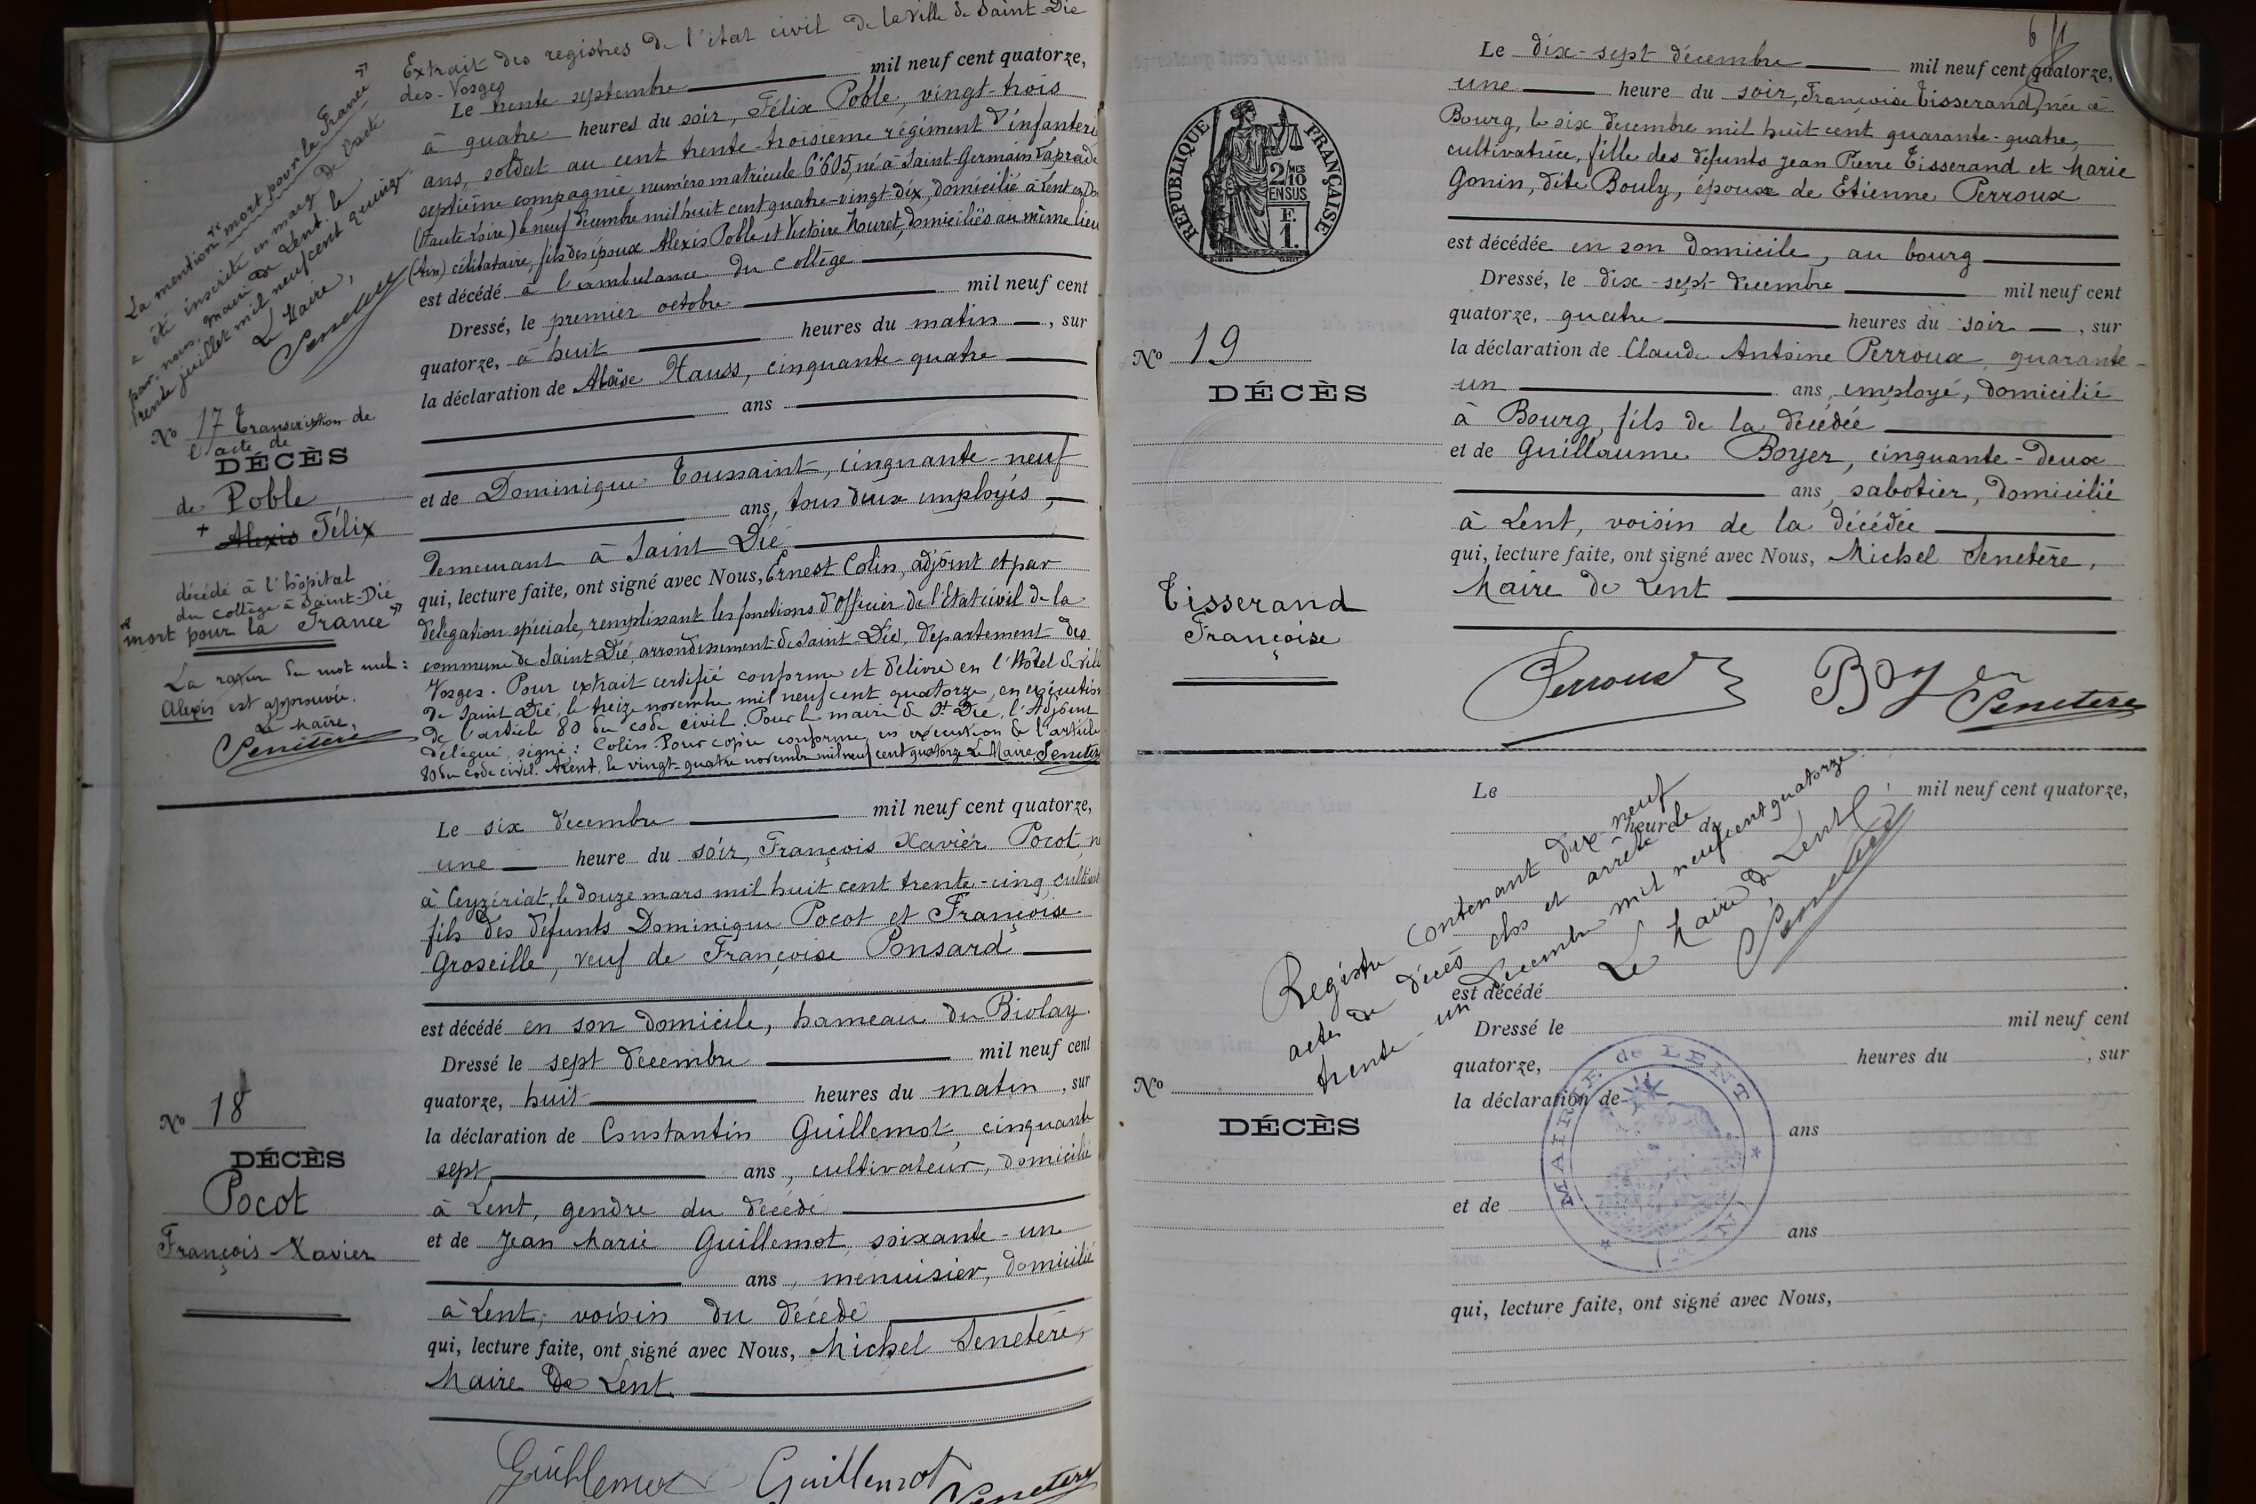 Extrait des registres de l'état civil de la ville de Saint-Dié
des-Vosges
Le trente septembre mil neuf cent quatorze,
à quatre heures du soir, Félix Poble, vingt-trois
ans, soldat au cent trente-troisième régiment d'infanterie
septième compagnie, numéro matricule 6605, né à Saint-Germain Laprade
(Haute Loire) le neuf décembre mil huit cent quatre-vingt-dix, domicilié à Lent
(Ain) célibataire, fils des époux Alexis Poble et Victoire Mouret, domiciliés au même lieu
est décédé à l'ambulance du collège
Dressé, le premier octobre mil neuf cent
quatorze, à huit heures du matin, sur
la déclaration de Aloïse Hauss, cinquante-quatre
ans
et de Dominique Toussaint, cinquante-neuf
ans, tous deux employés,
demeurant à Saint Dié
qui, lecture faite, ont signé avec Nous, Ernest Colin, adjoint et par
délégation spéciale, remplissant les fonctions d'Officier de l'Etat civil de la
commune de Saint-Dié, arrondissement de Saint-Dié, département des
Vosges. Pour extrait certifié conforme et délivré en l'Hôtel de Ville
de Saint Dié, le treize novembre mil neuf cent quatorze, en exécution
de l'article 80 du code civil. Pour le maire de St Dié, l'Adjoint
délégué, signé: Colin. Pour copie conforme en exécution de l'article
80 du code civil. A Lent, le vingt-quatre novembre mil neuf cent quatorze Le Maire, Senetère
La mention "mort pour la France"
a été inscrite en marge de l'acte
par nous, maire de Lent le
trente juillet mil neuf cent quinze.
Le Maire,
Senetère
No 17 Transcription de
l'acte de
DÉCÈS
de Poble
+ Alexis Félix
décédé à l'hôpital
du collège à Saint-Dié
"mort pour la France"
La rature du mot nul:
Alexis est approuvée.
Le maire,
Senetère
Le six décembre mil neuf cent quatorze,
une heure du soir, François Xavier Pocot, n
à Ceyzériat, le douze mars mil huit cent trente-cinq,
fils des défunts Dominique Pocot et Françoise
Groseille, veuf de Françoise Ponsard
est décédé en son domicile, hameau du Biolay.
Dressé le sept décembre mil neuf cent
quatorze, huit heures du matin, sur
la déclaration de Constantin Guillemot, cinquante
sept ans, cultivateur, domicilié
à Lent, gendre du décédé
et de Jean Marie Guillemot, soixante-un
ans, menuisier, domicilié
à Lent, voisin du décédé
qui, lecture faite, ont signé avec Nous, Michel Senetère,
Maire de Lent
No 18
DÉCÈS
Pocot
François Xavier
Guillemot Guillemot
Senetère
6
RÉPUBLIQUE FRANÇAISE
2/10 MES
EN SUS
F.
1.
Le dix-sept décembre mil neuf cent quatorze,
une heure du soir, Françoise Tisserand, née à
Bourg, le six décembre mil huit cent quarante-quatre,
cultivatrice, fille des défunts Jean Pierre Tisserand et Marie
Gonin, dite Bouly, épouse de Etienne Perroux
est décédée en son domicile, au bourg
Dressé, le dix-sept décembre mil neuf cent
quatorze, quatre heures du soir, sur
la déclaration de Claude Antoine Perroux, quarante-
un ans, employé, domicilié
à Bourg, fils de la décédée
et de Guillaume Boyer, cinquante-deux
ans, sabotier, domicilié
à Lent, voisin de la décédée
qui, lecture faite, ont signé avec Nous, Michel Senetère,
Maire de Lent
No 19
DÉCÈS
Tisserand
Françoise
Perroux Boyer
Senetère
Le mil neuf cent quatorze,
heure du
est décédé
Dressé le mil neuf cent
quatorze, heures du , sur
la déclaration de
ans
et de
ans
qui, lecture faite, ont signé avec Nous,
No
DÉCÈS
Registre contenant dix-neuf
actes de décès clos et arrêté le
trente-un décembre mil neuf cent quatorze.
Le Maire de Lent,
Senetère
MAIRIE de LENT
(AIN)